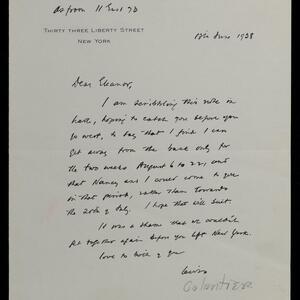 as from 11 East 70
THIRTY THREE LIBERTY STREET
NEW YORK
12th June 1938
Dear Eleanor,
I am scribbling this note in
haste, hoping to catch you before you
go west, to say that I find I can
get away from the bank only for
the two weeks August 6 to 22, and
that Nancy and I could come to you
in that period, rather than towards
the 20th of July. I hope that will suit.
It was a shame that we couldn't
get together again before you left New York.
love to both of you
Lewis
Galantiere